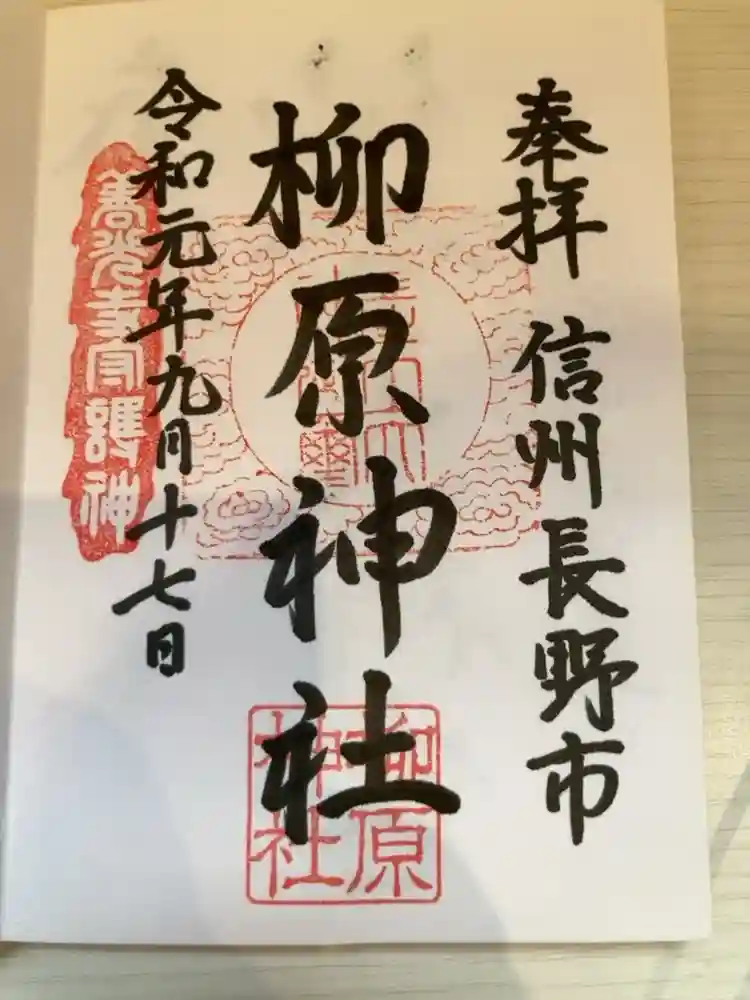 奉拝 信州長野市
柳原神社
令和元年九月十七日
善光寺守護神
柳原
神社